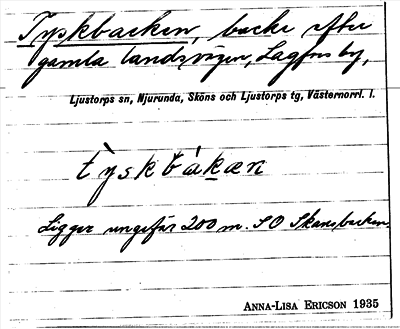 Tyskbacken, backe efter
gamla landsvägen, Lagfors by,
Ljustorps sn, Njurunda, Sköns och Ljustorps tg, Västernorrl. l.
týskbàkæn
Ligger ungefär 200 m. SO Skansbacken.
ANNA-LISA ERICSON 1935